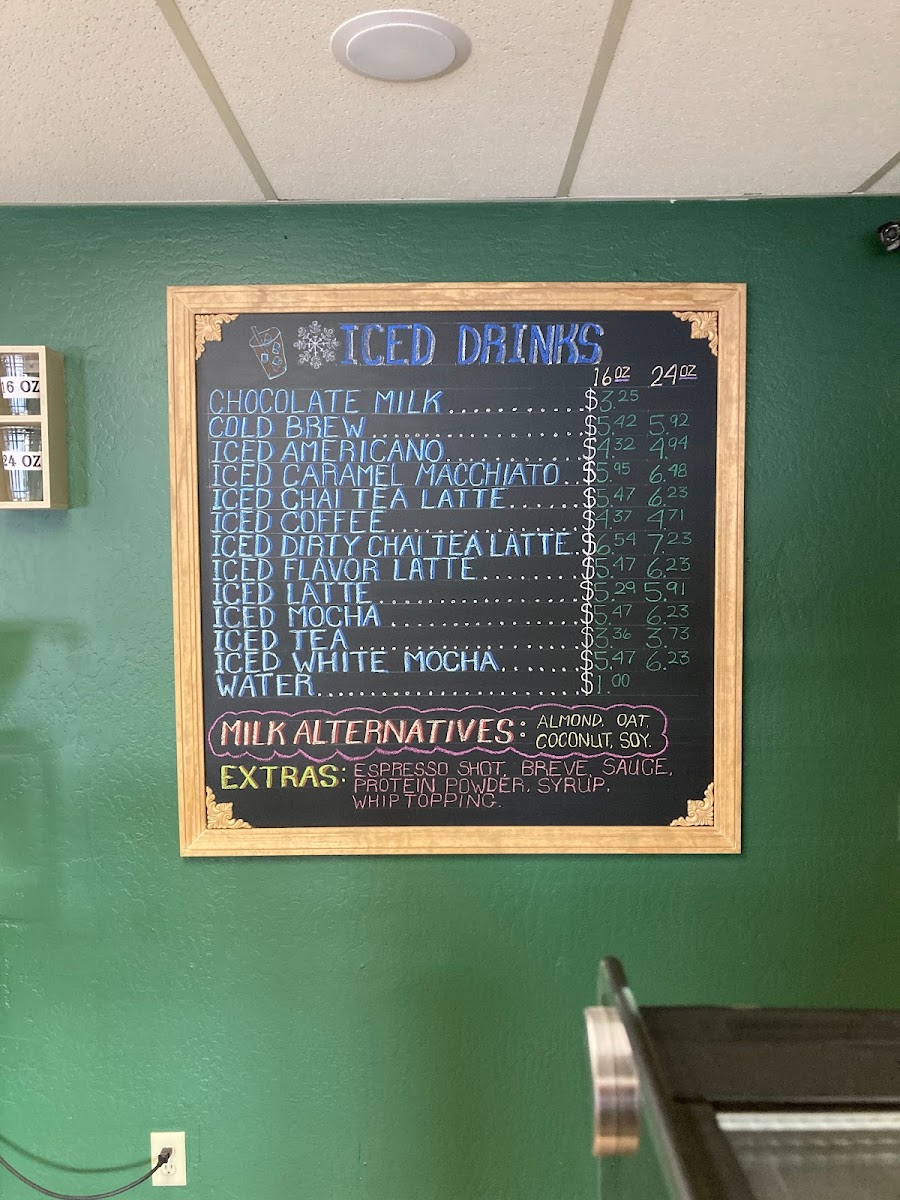 ICED DRINKS
16 OZ 24 OZ
CHOCOLATE MILK $3.25
COLD BREW $5.42 5.92
ICED AMERICANO $4.32 4.94
ICED CARAMEL MACCHIATO $5.95 6.48
ICED CHAI TEA LATTE $5.47 6.23
ICED COFFEE $4.37 4.71
ICED DIRTY CHAI TEA LATTE $6.54 7.23
ICED FLAVOR LATTE $5.47 6.23
ICED LATTE $5.29 5.91
ICED MOCHA $5.47 6.23
ICED TEA $3.36 3.73
ICED WHITE MOCHA $5.47 6.23
WATER $1.00
MILK ALTERNATIVES: ALMOND, OAT,
COCONUT, SOY.
EXTRAS: ESPRESSO SHOT, BREVE, SAUCE,
PROTEIN POWDER, SYRUP,
WHIP TOPPING.
16 OZ
24 OZ